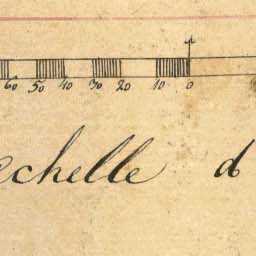 60 50 40 30 20 10 0
echelle d